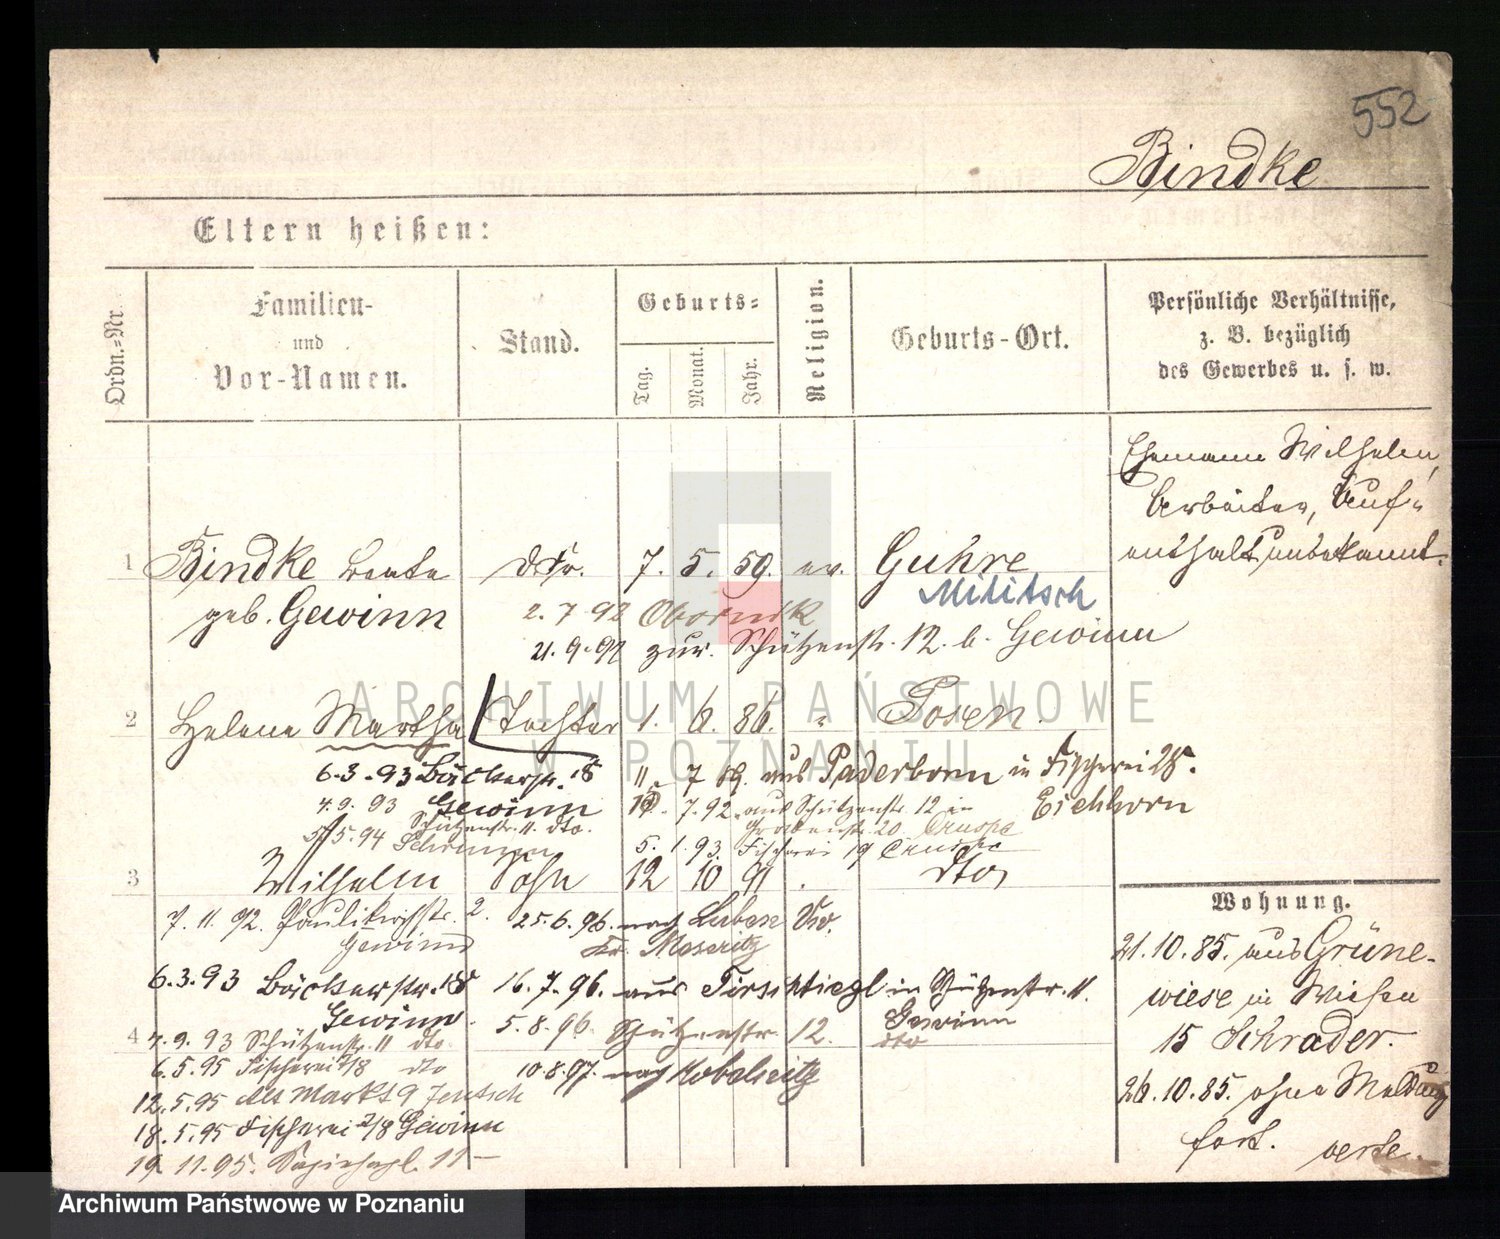 552
Bindke
Eltern heißen:
Ordn.-Nr.
Familien-
und
Vor-Namen.
Stand.
Geburts-
Tag.
Monat.
Jahr.
Religion.
Geburts-Ort.
Persönliche Verhältnisse,
z. B. bezüglich
des Gewerbes u. s. w.
Ehemann Wilhelm,
Arbeiter, Auf-
enthalt unbekannt.
1 Bindke Beate 7. 5. 59. ev. Guhre
Militsch
geb. Gewinn
2. 7 92 Obornik
21. 9. 92 zur. Schützenstr. 12. b. Gewinn
2 Helene Martha Tochter 1. 6. 86. " Posen.
6.3.93 Bäckerstr. 18
Gewinn
11. 7 89. aus Paderborn in Fischerei 28.
Eichhorn
4.9.93
Schützenstr. 11. dto.
7.92. aus Schützenstr. 12 in
Grabenstr. 20
5.94
5. 1. 93. Fischerei 19
3 Wilhelm Sohn 12 10 91 dto
7. 11. 92. Paulikirchstr. 2.
Gewinn
25.6.96. nach Luben
Kr. Meseritz
6.3.93 Bäckerstr. 18
Gewinn
16. 7. 96. aus Tirschtiegl in Schützenstr. 11.
Gewinn
4
4. 9. 93 Schützenstr. 11 dto
5. 8. 96. Schützenstr. 12.
dto
6. 5. 95 Fischerei 7/8 dto
10.8.97. nach Kobelnitz
12. 5. 95 Alt Markt 9 Jentsch
18. 5. 95 Fischerei 7/8 Gewinn
19. 11. 95. 11
Wohnung.
21. 10. 85. aus Grüne-
wiese in Wiesen
15 Schrader.
26. 10. 85. ohne Meldung
fort. verte.
ARCHIWUM PAŃSTWOWE
W POZNANIU
Archiwum Państwowe w Poznaniu